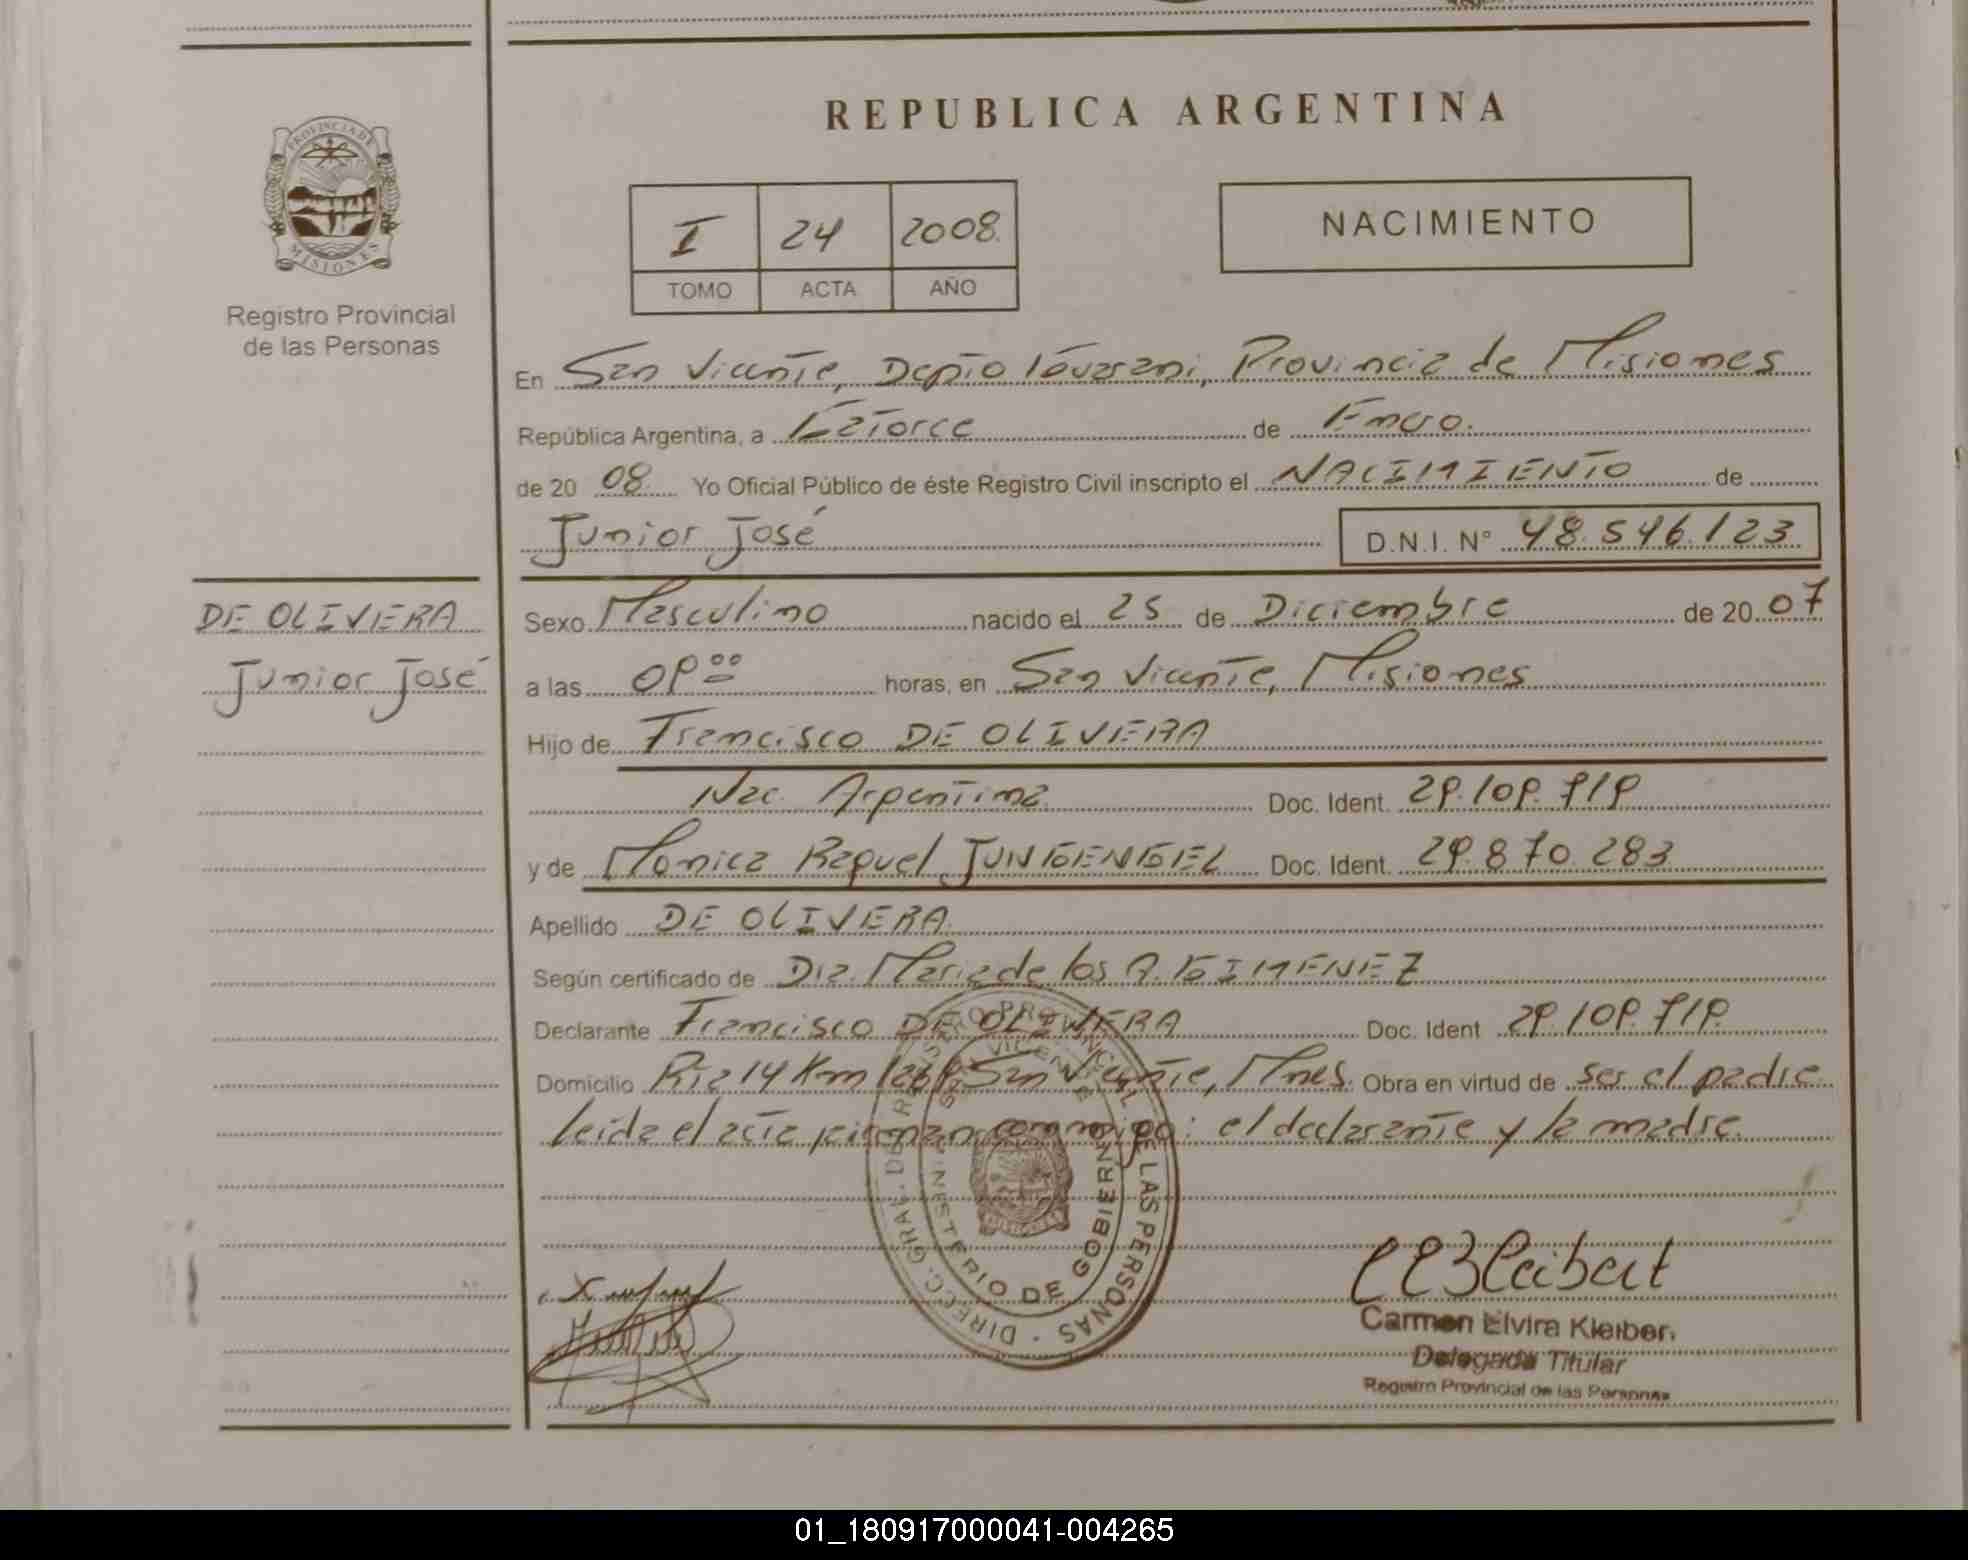 REPUBLICA ARGENTINA
PROVINCIA DE
MISIONES
Registro Provincial
de las Personas
I 24 2008.
TOMO ACTA AÑO
NACIMIENTO
En San Vicente, Depto Guarani, Provincia de Misiones
República Argentina, a Catorce de Enero.
de 20 08. Yo Oficial Público de éste Registro Civil inscripto el NACIMIENTO de
Junior José D.N.I. N° 48.546.123
DE OLIVERA
Junior José
Sexo Masculino nacido el 25 de Diciembre de 20 07
a las 09 00 horas, en San Vicente, Misiones
Hijo de Francisco DE OLIVERA
Nac. Argentina Doc. Ident. 29.109.719
y de Monica Raquel JUNGENGEL Doc. Ident. 29.870.283
Apellido DE OLIVERA
Según certificado de Dra. Maria de los A. GIMENEZ
Declarante Francisco DE OLIVERA Doc. Ident 29.109.719.
Domicilio Rta 14 Km San Vicente, Mnes. Obra en virtud de ser el padre
leida el acta firman conmigo: el declarante y la madre.
DIRECC. GRAL. DEL REGISTRO PROVINCIAL DE LAS PERSONAS
SAN VICENTE
MINISTERIO DE GOBIERNO
Carmen Elvira Kleiber
Delegada Titular
Registro Provincial de las Personas
01_180917000041-004265